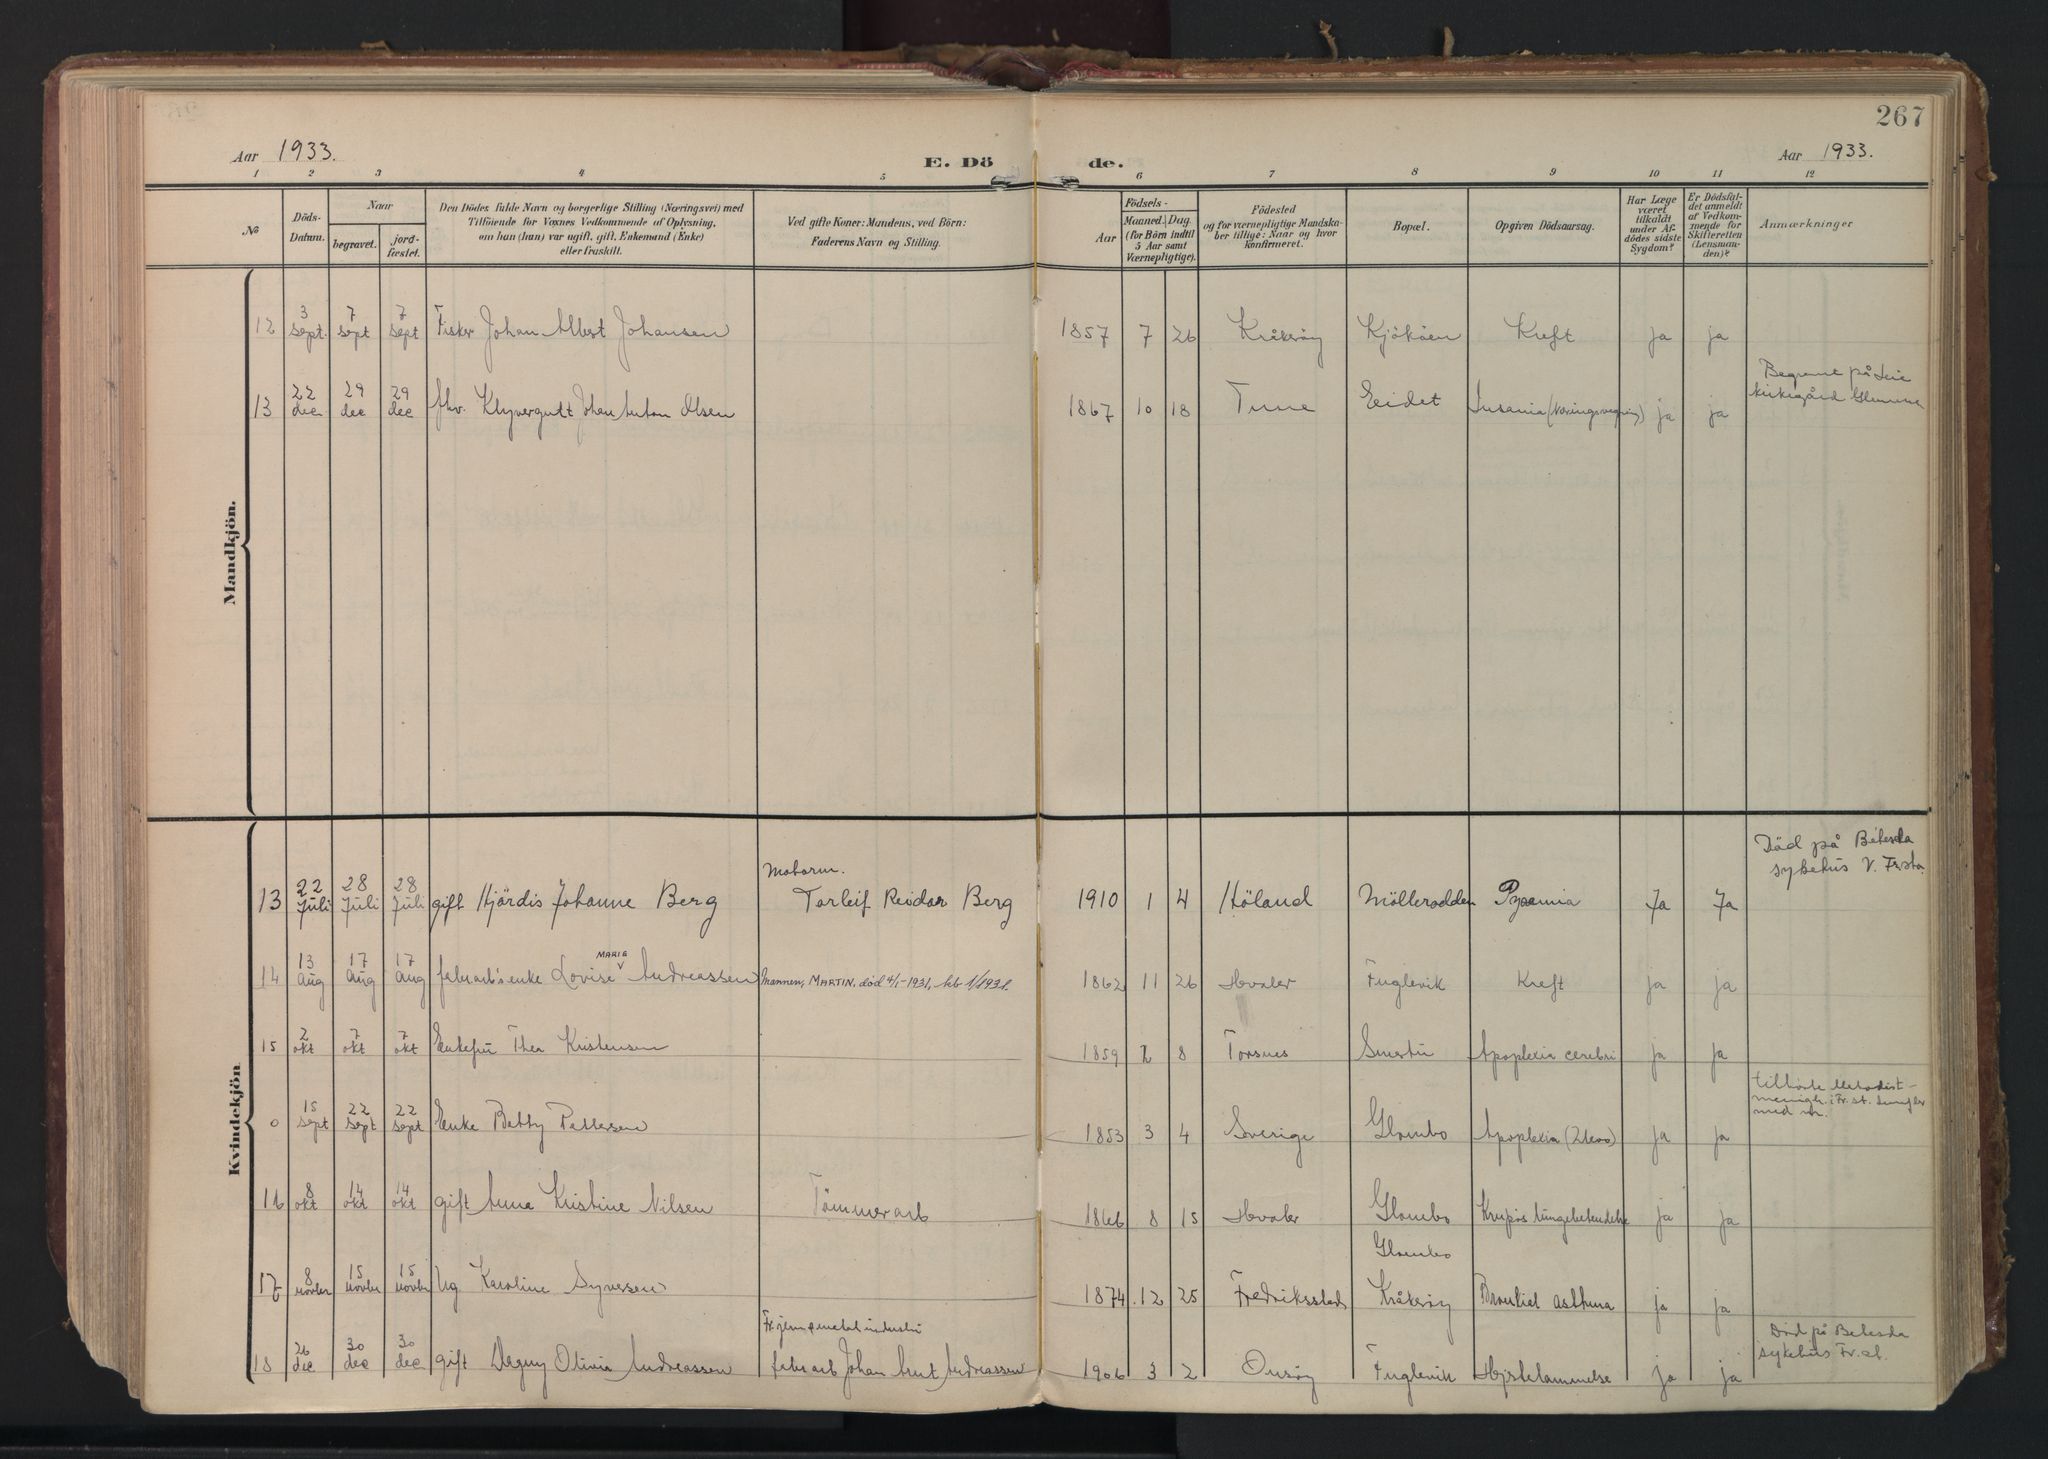 267
Aar 1933. E. Dö de. Aar 1933.
1 2 3 4 5 6 7 8 9 10 11 12
No
Döds-
Datum.
Naar
begravet.
jord-
fæstet.
Den Dödes fulde Navn og borgerlige Stilling (Næringsvei) med
Tilföiende for Voxnes Vedkommende af Oplysning,
om han (hun) var ugift, gift, Enkemand (Enke)
eller fraskilt.
Ved gifte Koner: Mandens, ved Börn:
Faderens Navn og Stilling.
Födsels-
Aar
Maaned. Dag.
(for Börn indtil
5 Aar samt
Værnepligtige).
Födested
og for værnepligtige Mandska-
ber tillige: Naar og hvor
konfirmeret.
Bopæl.
Opgiven Dödsaarsag.
Har Læge
været
tilkaldt
under Af-
dödes sidste
Sygdom?
Er Dödsfal-
det anmeldt
af Vedkom-
mende for
Skifteretten
(Lensman-
den)?
Anmærkninger
Mandkjön.
12 3 sept. 7 sept 7 sept Fisker Johan Albert Johansen 1857 7 26 Kråkerøy Kjøkøen Kreft ja ja
Begravet på Leie
kirkegård Glemmen
13 22 dec. 29 dec 29 dec fhv. Klyvergutt Johan Anton Olsen 1867 10 18 Tune Eeidet Insania (Næringsvegring) ja ja
Kvindekjön
Död på Betesda
sykehus V. Fr.sta.
Motorm.
13 22 Juli 28 Juli 28 Juli gift Hjördis Johanne Berg Torleif Reidar Berg 1910 1 4 Höland Möllerodden Pyæmia Ja Ja
MARIE
14 13 Aug 17 Aug 17 Aug fabr.arb's enke Lovise V Andreassen Mannen, MARTIN, död 4/1-1931, kb 1/1931. 1862 11 26 Hvaler Fuglevik Kreft ja ja
15 2 okt 7 okt 7 okt Enkefru Thea Kristensen 1859 2 8 Torsnes Smertu Apoplexia cerebri ja ja
tilhørte Metodist-
menigh. i Fr.st.
med nr.
0 15 sept 22 sept 22 sept Enke Betty Pettersen 1853 3 4 Sverige Glombo Apoplexia ja ja
16 8 okt 14 okt 14 okt gift Anna Kristine Nilsen Tömmerarb 1866 8 15 Hvaler Glombo Krupøs lungebetendelse ja ja
Glombo
17 8 novbr 15 novbr 15 novbr Ug Karoline Syversen 1874 12 25 Fredriksstad Kråkerøy Bronkial asthma ja ja
Fr. jern & metal industri
Död på Betesda
sykehus Fr.st.
18 26 dec 30 dec 30 dec gift Dagny Olivia Andreassen fabr.arb Johan Arnt Andreassen 1906 3 2 Onsøy Fuglevik Hjertelammelse ja ja